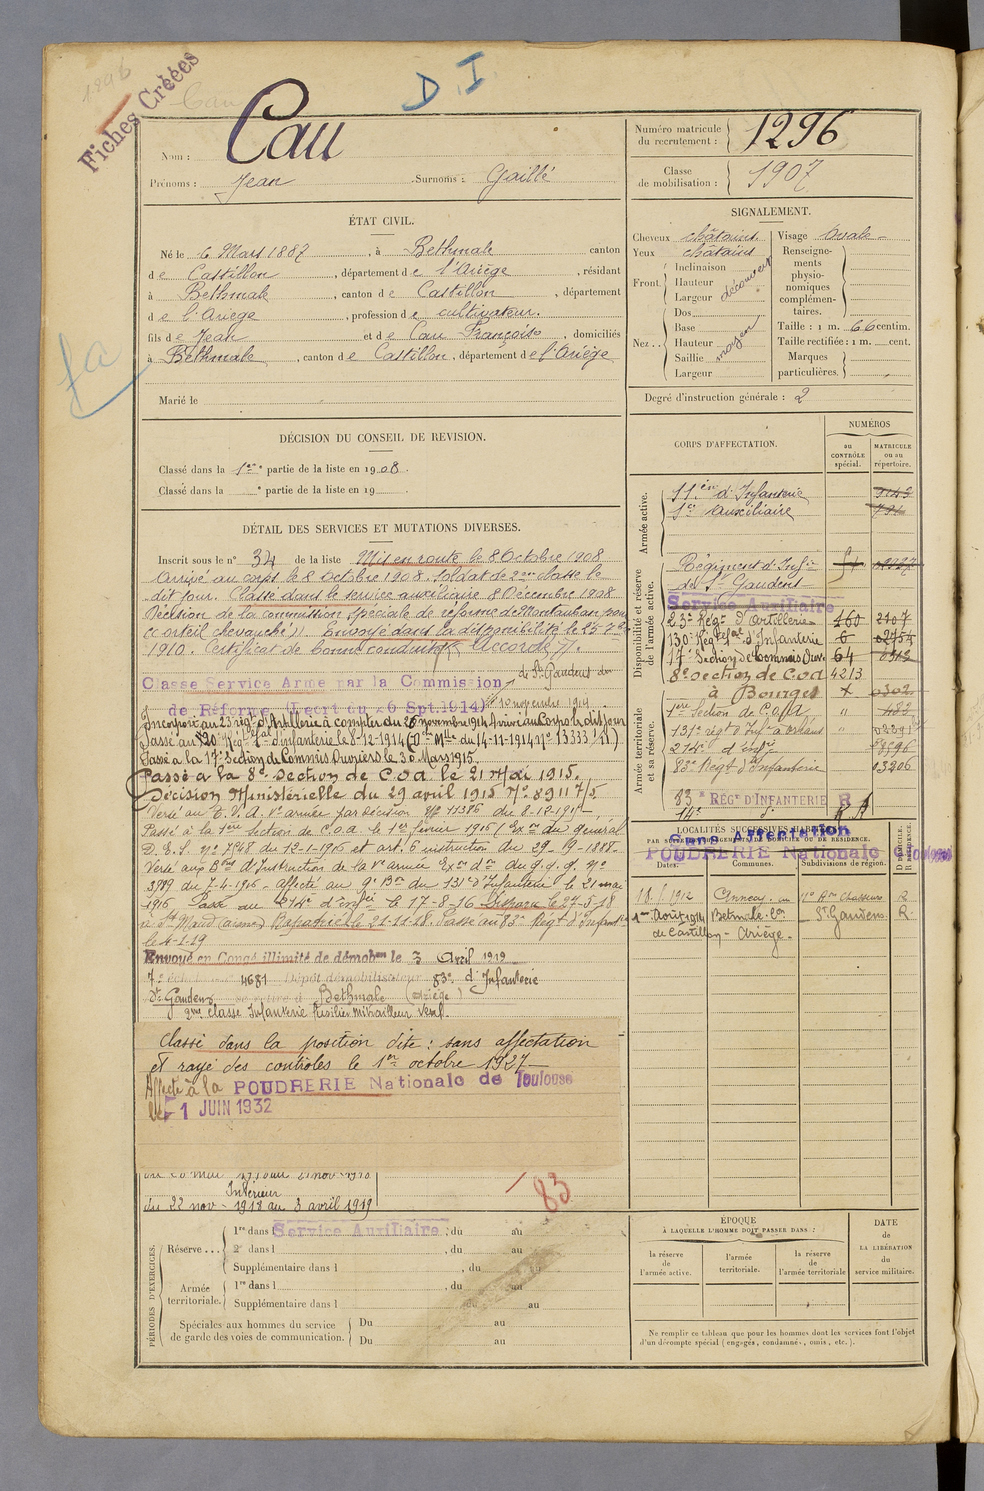 1296
Fiches Créées
D.I
Nom : Cau
Prénoms : Jean Surnoms : Gaillé
Numéro matricule du recrutement : 1296
Classe de mobilisation : 1907
ÉTAT CIVIL.
Né le 6 Mars 1887, à Bethmale canton
de Castillon, département de l'Ariège, résidant
à Bethmale, canton de Castillon, département
de l'Ariège, profession de cultivateur.
fils de Jean et de Cau Françoise, domiciliés
à Bethmale, canton de Castillon, département de l'Ariège
Marié le
fa
SIGNALEMENT.
Cheveux châtains Visage Ovale
Yeux châtains
Front. Inclinaison Hauteur Largeur découvert
Nez.. Dos Base Hauteur Saillie Largeur moyen
Renseignements physionomiques complémentaires.
Taille : 1 m. 66 centim.
Taille rectifiée : 1 m. cent.
Marques particulières.
Degré d'instruction générale : 2
DÉCISION DU CONSEIL DE REVISION.
Classé dans la 1re partie de la liste en 1908.
Classé dans la partie de la liste en 19
DÉTAIL DES SERVICES ET MUTATIONS DIVERSES.
Inscrit sous le n° 34 de la liste Mis en route le 8 Octobre 1908
Arrivé au corps le 8 octobre 1908. Soldat de 2me classe le
dit jour. Classé dans le service auxiliaire 8 Décembre 1908
Décision de la commission spéciale de réforme de Montauban pour
(( orteil chevauché )) Envoyé dans la disponibilité le 25 7bre
1910. Certificat de bonne conduite Accordé.
Classé Service Armé par la Commission de St Gaudens du
de Réforme (Décrt du 26 Spt.1914) 10 novembre 1914
Incorporé au 23e régt d'Artillerie à compter du 26 novembre 1914 Arrivé au Corps le dit jour
Passé au 120 Régt d'infanterie le 8-12-1914 (Don Mlle du 14-11-1914 N° 13333 1/11)
Passé à la 17e Section de Commis Ouvriers le 30 Mars 1915.
Passé à la 8e Section de C.O.A. le 21 Mai 1915.
Décision Ministérielle du 29 avril 1915 N° 8911 7/5
Versé au T.V.A. 1re armée par décision N° 11386 du 8-12-1915
Passé à la 1ère Section de C.O.A. le 1er février 1916 (Exon du général
Versé aux Bons d'Instruction de la Ve armée
3989 du 7-4-1916 - affecté au 9e Bon du 131e d'Infanterie le 21 mai
1916 Passé au 214e d'infie le 17-8-16 Disparu le 27-5-18
Rapatrié le 21-11-18. Passé au 83e Régt d'Infanterie
le 4-1-19
Envoyé en Congé illimité de démobon le 3 Avril 1919
7e échelon n° 4681 Dépôt démobilisateur 83e d'Infanterie
St Gaudens se retire à Bethmale (Ariège)
2me classe Infanterie fusilier mitrailleur
Classé dans la position dite : sans affectation
et rayé des contrôles le 1er octobre 1927
Affecté à la POUDRERIE Nationale de Toulouse
le 1 JUIN 1932
Intérieur
du 22 nov - 1918 au 3 avril 1919
83
CORPS D'AFFECTATION.
NUMÉROS
au CONTRÔLE spécial.
MATRICULE ou au répertoire.
Armée active.
11ème d'Infanterie
Sce Auxiliaire
Disponibilité et réserve de l'armée active.
Régiment d'Infie
de St Gaudens
Service Auxiliaire
23e Régt d'Artillerie 460 2407
130e Régt d'Infanterie 6
17e Section de Commis Ouv. 64
8e Section de C.O.A 4213
à Bourges
Armée territoriale et sa réserve.
1ère Section de C.O.A. " 483
131e régt d'Infie à Orléans "
214e d'infie
83e Régt d'Infanterie 03206
83e RÉGt D'INFANTERIE R
14e d°
LOCALITÉS SUCCESSIVES HABITÉES
PAR SUITE DE CHANGEMENTS DE DOMICILE OU DE RÉSIDENCE.
Sans Affectation
POUDRERIE Nationale Toulouse
Dates. Communes. Subdivisions de région. D domicile. R résidence.
1912 Annecy R
1er Août 1914 Bethmale Con St Gaudens R.
de Castillon - Ariège.
PÉRIODES D'EXERCICES.
Réserve... 1re dans l Service Auxiliaire, du au
2e dans l , du au
Supplémentaire dans l , du au
Armée territoriale. 1re dans l , du au
Supplémentaire dans l , du au
Spéciales aux hommes du service de garde des voies de communication. Du au
Du au
ÉPOQUE
À LAQUELLE L'HOMME DOIT PASSER DANS :
la réserve de l'armée active.
l'armée territoriale.
la réserve de l'armée territoriale
DATE de LA LIBÉRATION du service militaire.
Ne remplir ce tableau que pour les hommes dont les services font l'objet
d'un décompte spécial (engagés, condamnés, omis, etc.).